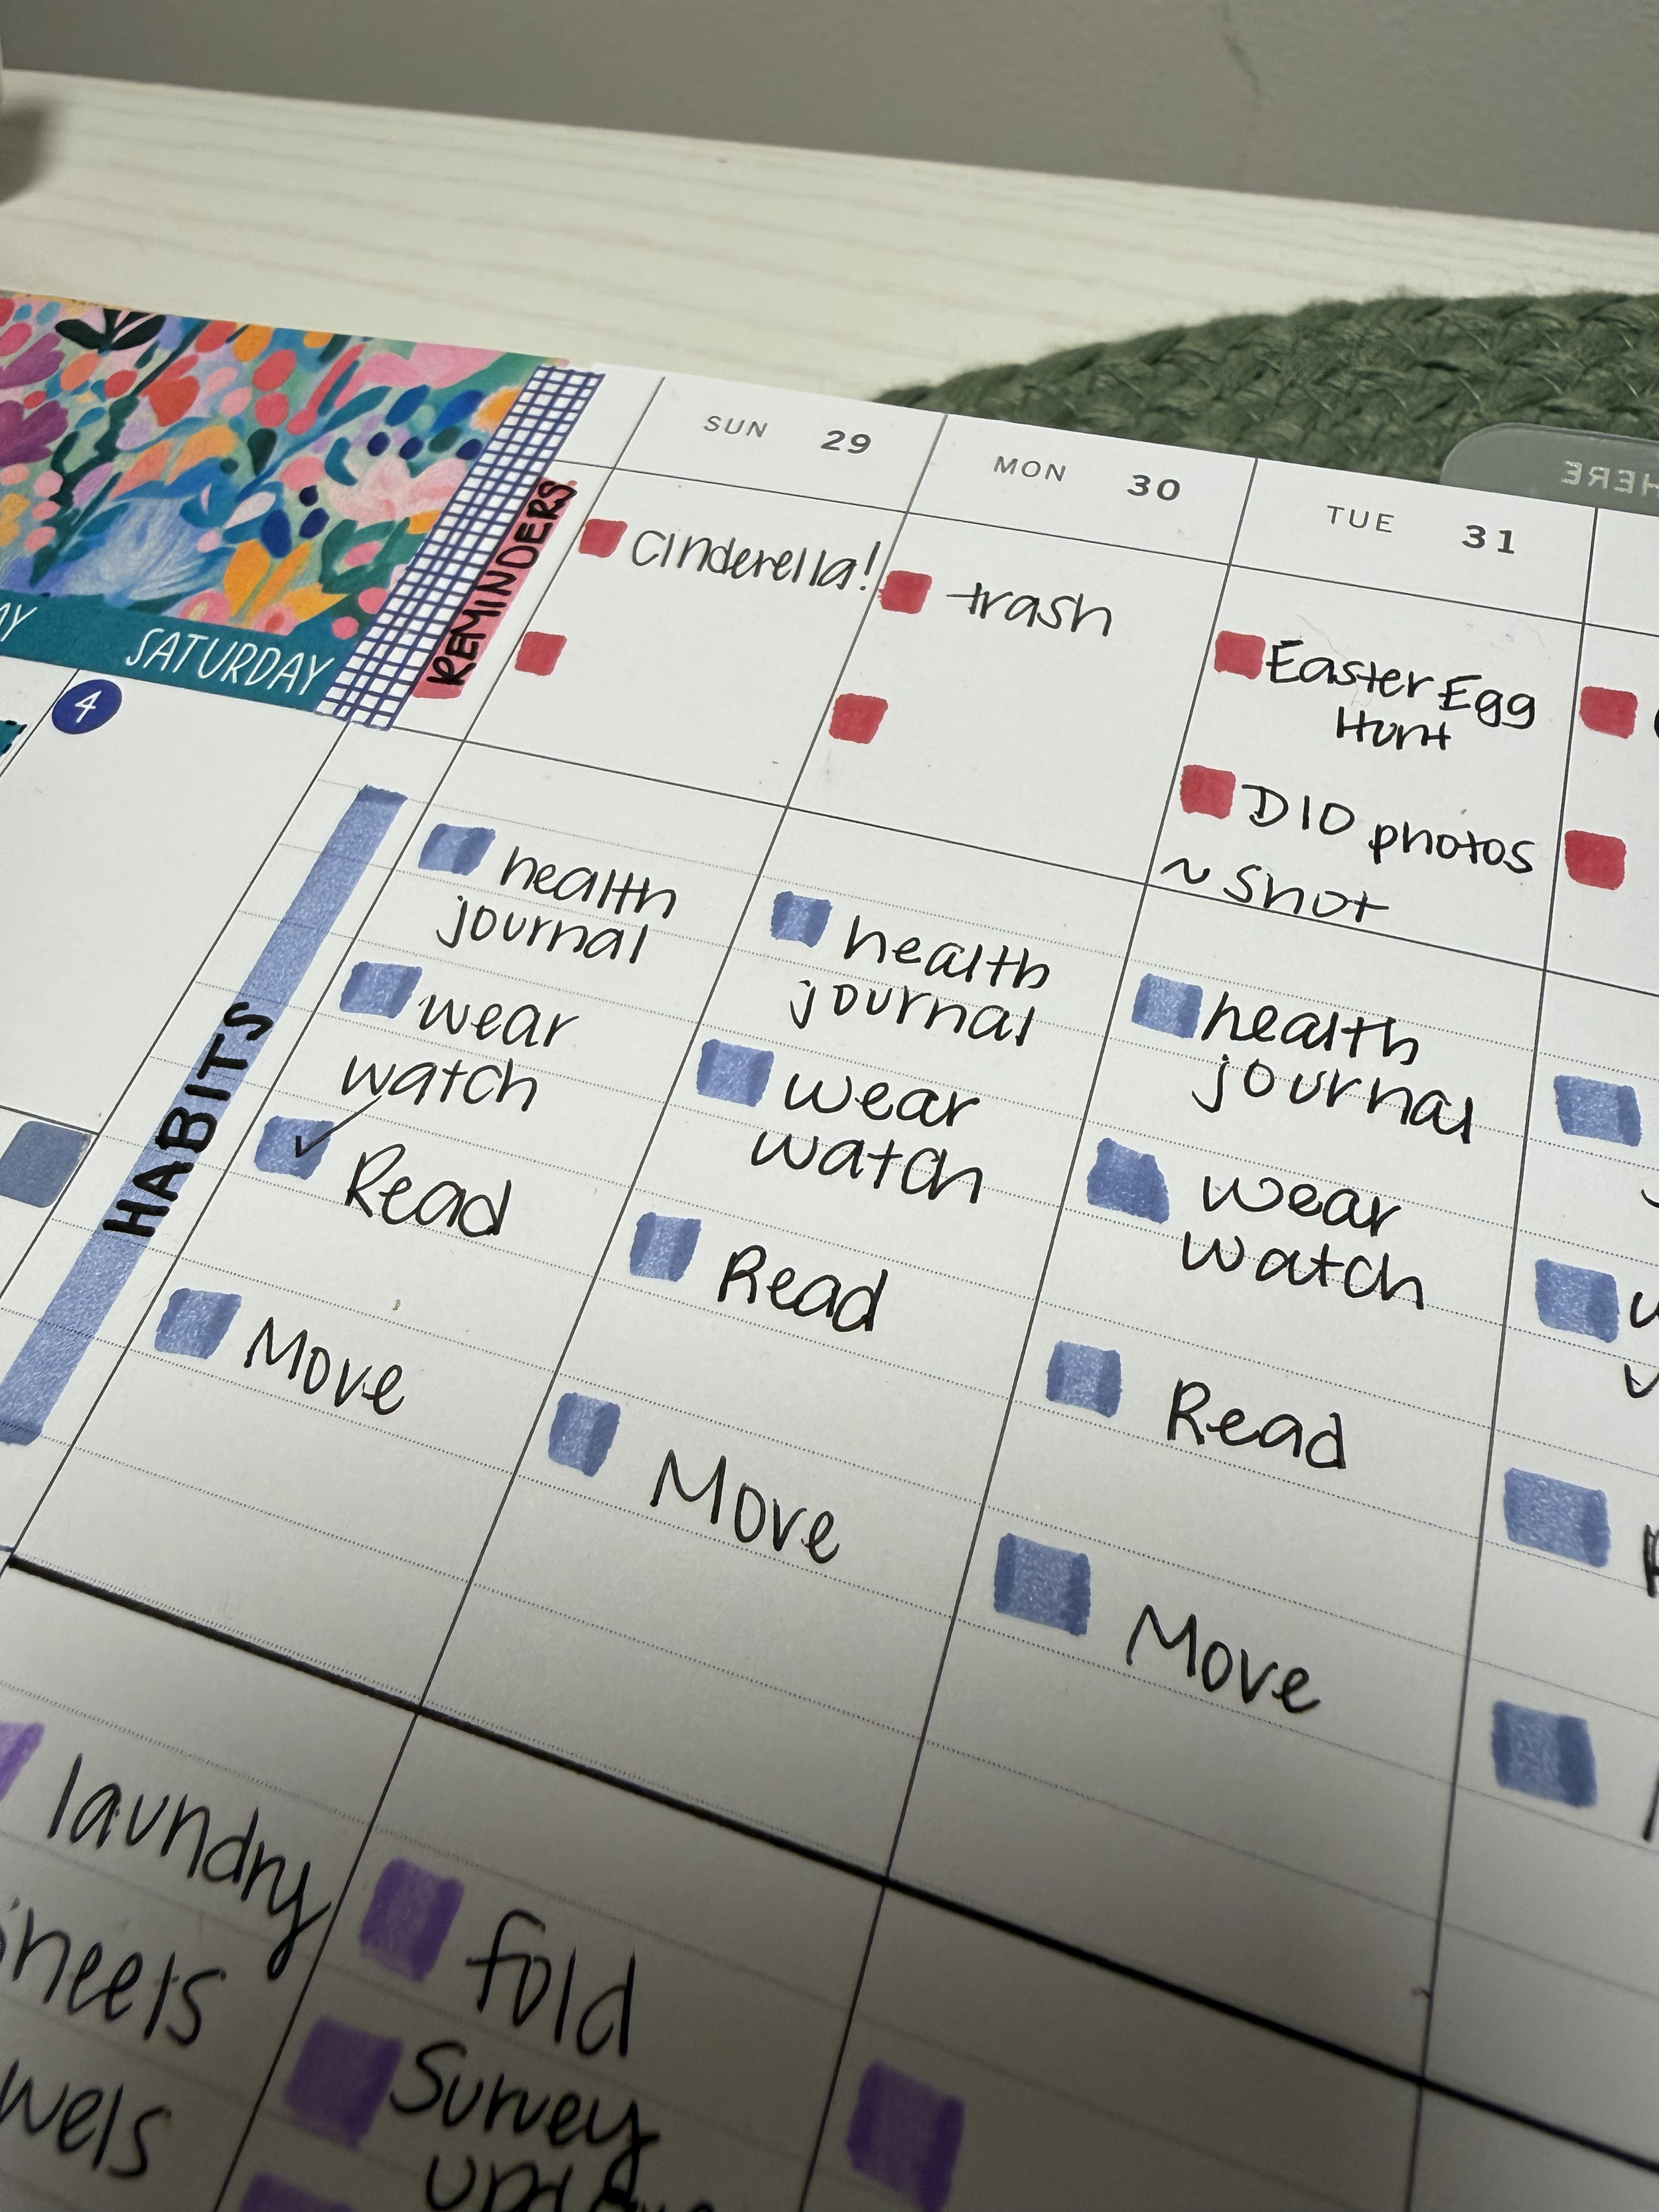 SATURDAY
4
REMINDERS
HABITS
SUN 29
Cinderella!
health
journal
wear
watch
Read
Move
laundry
MON 30
trash
health
journal
wear
watch
Read
Move
fold
Survey
TUE 31
Easter Egg
Hunt
D10 photos
~ shot
health
journal
wear
watch
Read
Move
HERE